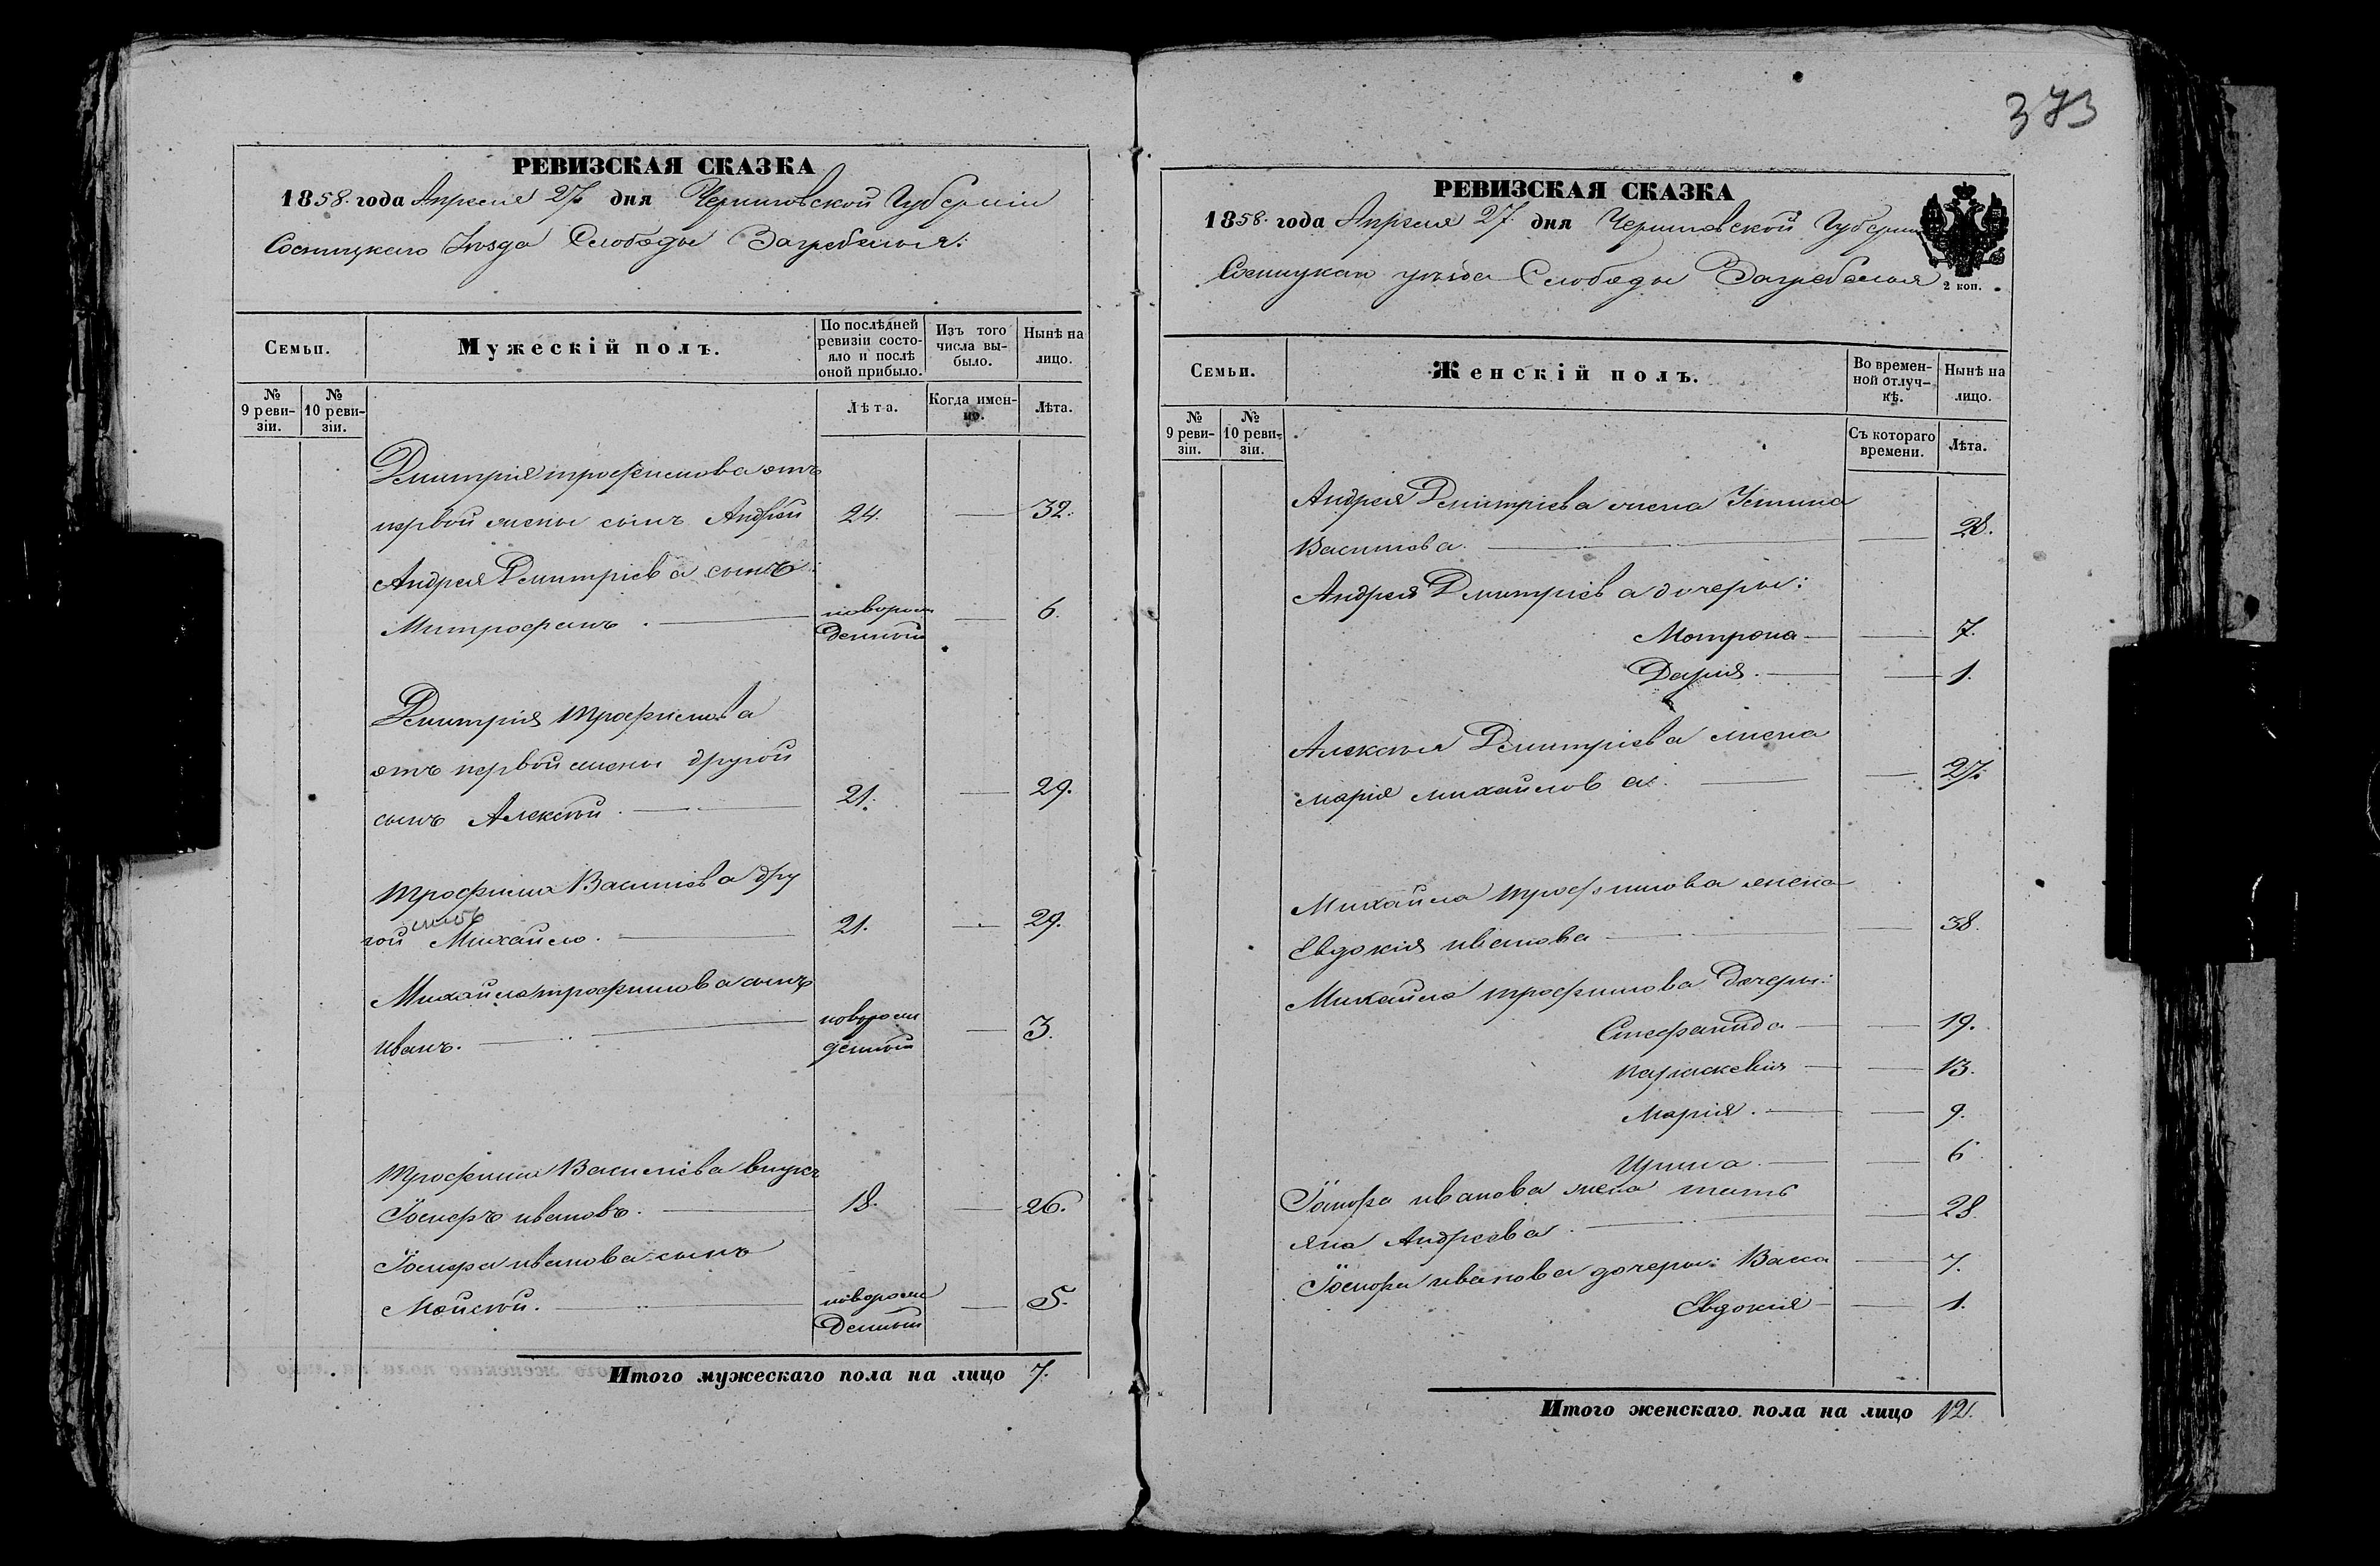 РЕВИЗСКАЯ СКАЗКА
1858. года Апреля 27. дня Черниговской Губерніи
Сосницкаго Уезда Слободы Загребелья:
Семьи.
Мужескій полъ.
По послѣдней ревизіи состояло и послѣ оной прибыло.
Изъ того числа выбыло.
Нынѣ на лицо.
№ 9 ревизіи.
№ 10 ревизіи.
Лѣта.
Когда именно.
Лѣта.
Дмитрія трофимова отъ
первой жены сынъ Андрей 24. — 32.
Андрея Дмитріева сынъ
Митрофанъ. — новорож
денный — 6.
Дмитрія трофимова
отъ первой жены другой
сынъ Алексѣй. — 21. — 29.
трофима Василіева дру
сынъ
гой Михайло. — 21. — 29.
Михайла трофимова сынъ
иванъ. — новорож
денный — 3.
трофима Василіева внукъ
Іосифъ ивановъ. — 18. — 26.
Іосифа иванова сынъ
Моисей. — новорож
денный — 5.
Итого мужескаго пола на лицо 7.
373
РЕВИЗСКАЯ СКАЗКА
1858. года Апреля 27. дня Черниговской Губерніи
Сосницкаго уѣзда Слободы Загребелья
2 коп.
Семьи.
Женскій полъ.
Во временной отлучкѣ.
Нынѣ на лицо.
№ 9 ревизіи.
№ 10 ревизіи.
Съ котораго времени.
Лѣта.
Андрея Дмитріева жена Устина
Василіова. — — 28.
Андрея Дмитріева дочеры:
Мотрона — — 7.
Дарія. — — 1.
Алексѣя Дмитріева жена
марія михайлова. — — 27.
Михайла трофимова жена
Евдокія иванова — — 38.
Михайла трофимова Дочеры:
Стефанида — — 19.
параскевія — — 13.
Марія. — — 9.
Ирина. — — 6.
Іосифа иванова жена тать
яна Андреева — — 28.
Іосифа иванова дочеры: Васса — 7.
Евдокія — — 1.
Итого женскаго пола на лицо 12.